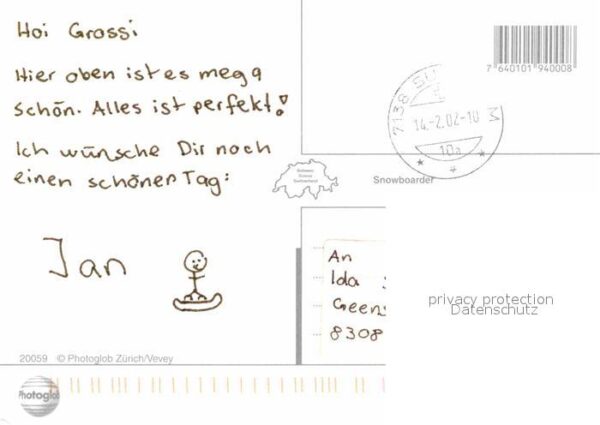 Hoi Grossi
Hier oben ist es mega
schön. Alles ist perfekt!
Ich wünsche Dir noch
einen schönen Tag:
Jan
7 640101 940008
7138 SU
14.-2.02-10
10a
Schweiz
Suisse
Switzerland
Snowboarder
An
Ida
8308
privacy protection
Datenschutz
20059 © Photoglob Zürich/Vevey
Photoglob